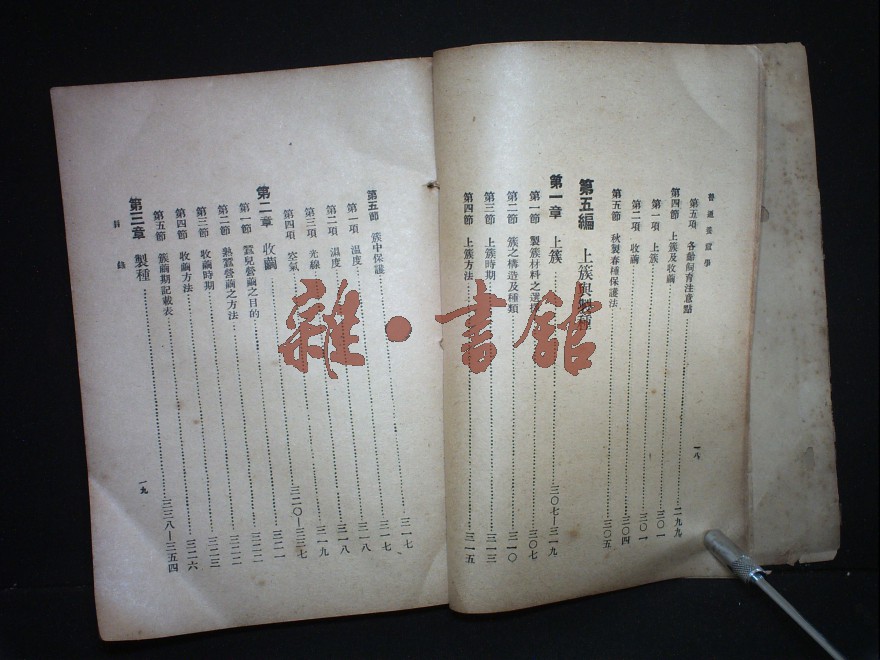 普通養蠶學
第五項 各齡飼育注意點 二九九
第四節 上簇及收繭 三〇一
第一項 上簇 三〇一
第二項 收繭 三〇四
第五節 秋製春種保護法 三〇五
第五編 上簇與製種
第一章 上簇 三〇七—三一九
第一節 製簇材料之選擇 三〇七
第二節 簇之構造及種類 三一〇
第三節 上簇時期 三一三
第四節 上簇方法 三一五
一八
第五節 簇中保護 三一七
第一項 溫度 三一七
第二項 濕度 三一八
第三項 光線 三一九
第四項 空氣
第二章 收繭 三二〇—三三七
第一節 蠶兒營繭之目的
第二節 熟蠶營繭之方法
第三節 收繭時期
第四節 收繭方法 三二六
第五節 簇繭期記載表
第三章 製種 三三八—三五四
目錄
一九
雜·書館